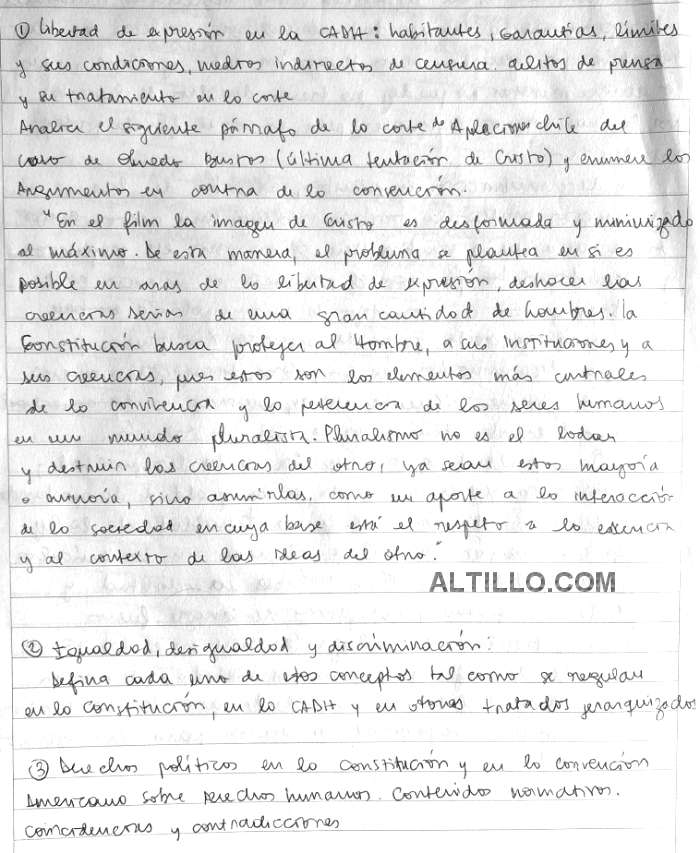 ① Libertad de expresión en la CADH: habitantes, Garantías, límites
y sus condiciones, medios indirectos de censura. delitos de prensa
y su tratamiento en la corte
Analice el siguiente párrafo de la corte de Apelaciones chile del
caso de Olmedo Bustos (última tentación de Cristo) y enumere los
Argumentos en contra de la convención.
"En el film la imagen de Cristo es desformada y minimizada
al máximo. De esta manera, el problema se plantea en si es
posible en aras de la libertad de expresión, deshacer las
creencias serias de una gran cantidad de hombres. La
Constitución busca proteger al Hombre, a sus Instituciones y a
sus creencias, pues estos son los elementos más centrales
de la convivencia y la pertenencia de los seres humanos
en un mundo pluralista. Pluralismo no es el
y destruir las creencias del otro, ya sean estos mayoría
o minoría, sino asumirlas, como un aporte a la interacción
de la sociedad en cuya base está el respeto a la esencia
y al contexto de las ideas del otro."
ALTILLO.COM
② Igualdad, desigualdad y discriminación:
Defina cada uno de estos conceptos tal como se regulan
en la constitución, en la CADH y en otros tratados jerarquizados
③ Derechos políticos en la constitución y en la convención
Americana sobre derechos humanos. Contenidos normativos.
coincidencias y contradicciones